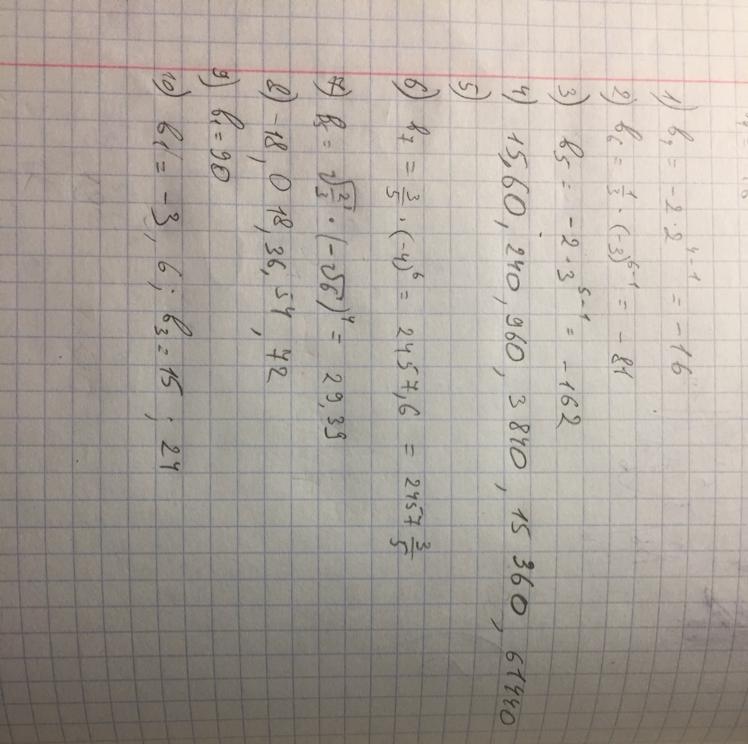 1) b₄ = -2 · 2⁴⁻¹ = -16
2) b₆ = 1/3 · (-3)⁶⁻¹ = -81
3) b₅ = -2 · 3⁵⁻¹ = -162
4) 15, 60, 240, 960, 3840, 15 360, 61440
5)
6) b₇ = 3/5 · (-4)⁶ = 2457,6 = 2457 3/5
7) b₅ = · (-√6)⁴ = 29,39
8) -18, 0 18, 36, 54, 72
9) b₁ = 90
10) b₁ = -3, 6; b₃ = 15 ; 24